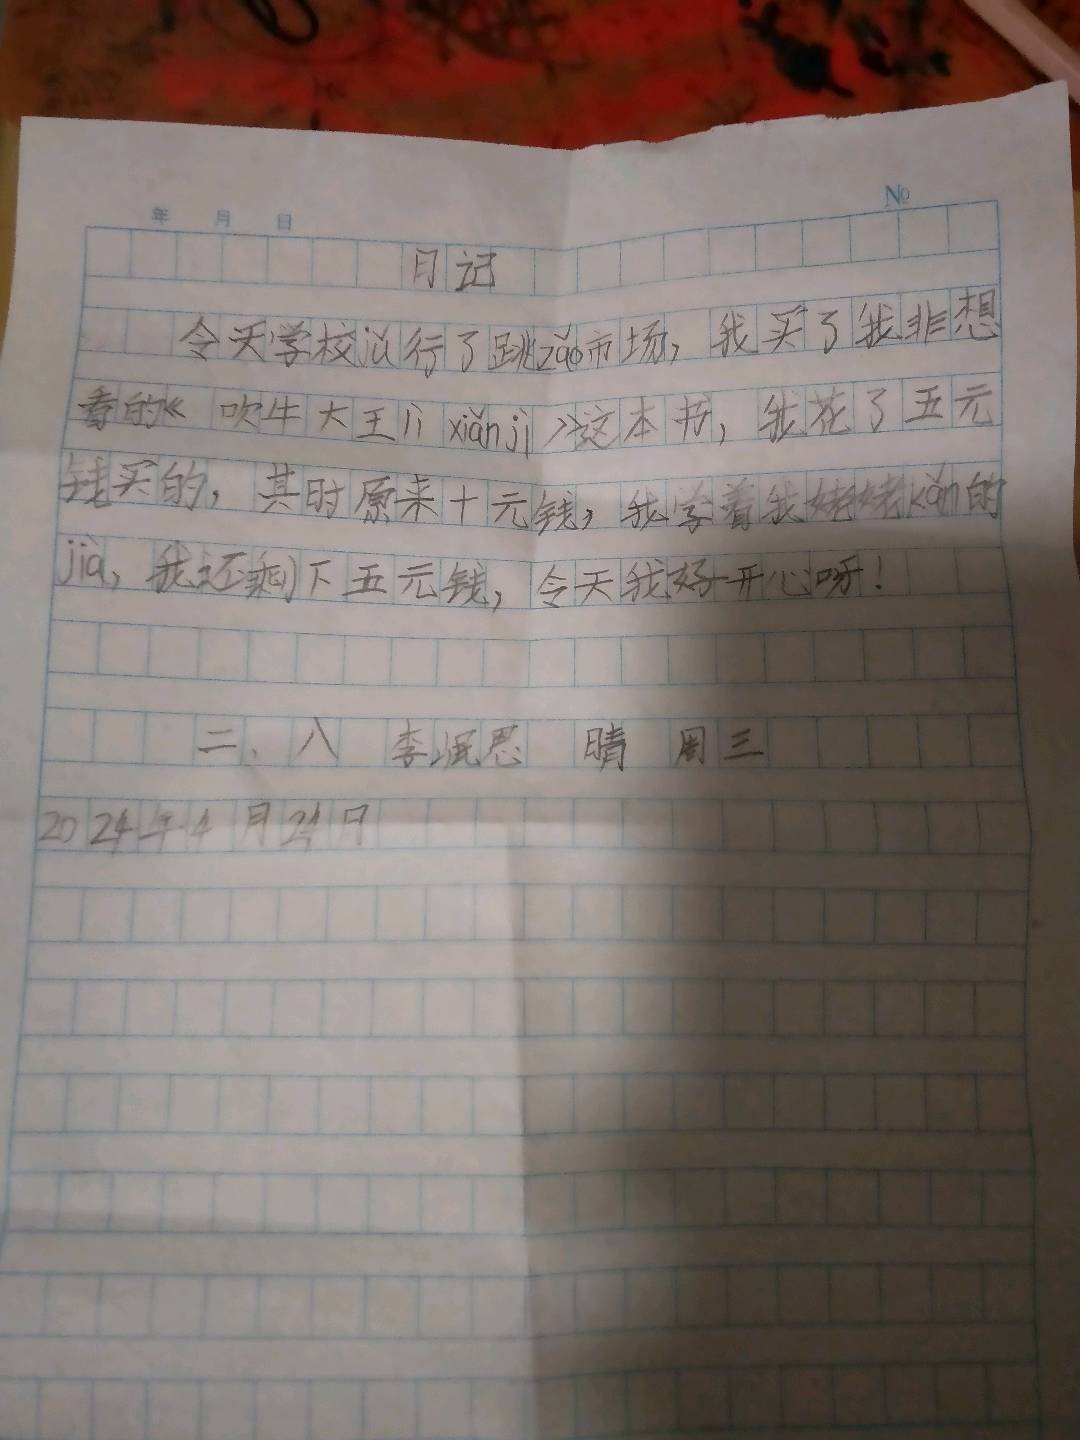 年 月 日
№
日记
今天学校jǔ行了跳zǎo市场，我买了我非想
看的《吹牛大王lì xiǎn jì》这本书，我花了五元
钱买的，其时原来十元钱，我学着我姥姥kǎn的
jià，我还剩下五元钱，今天我好开心呀！
二、八 李岷恩 晴 周三
2024年4月24日